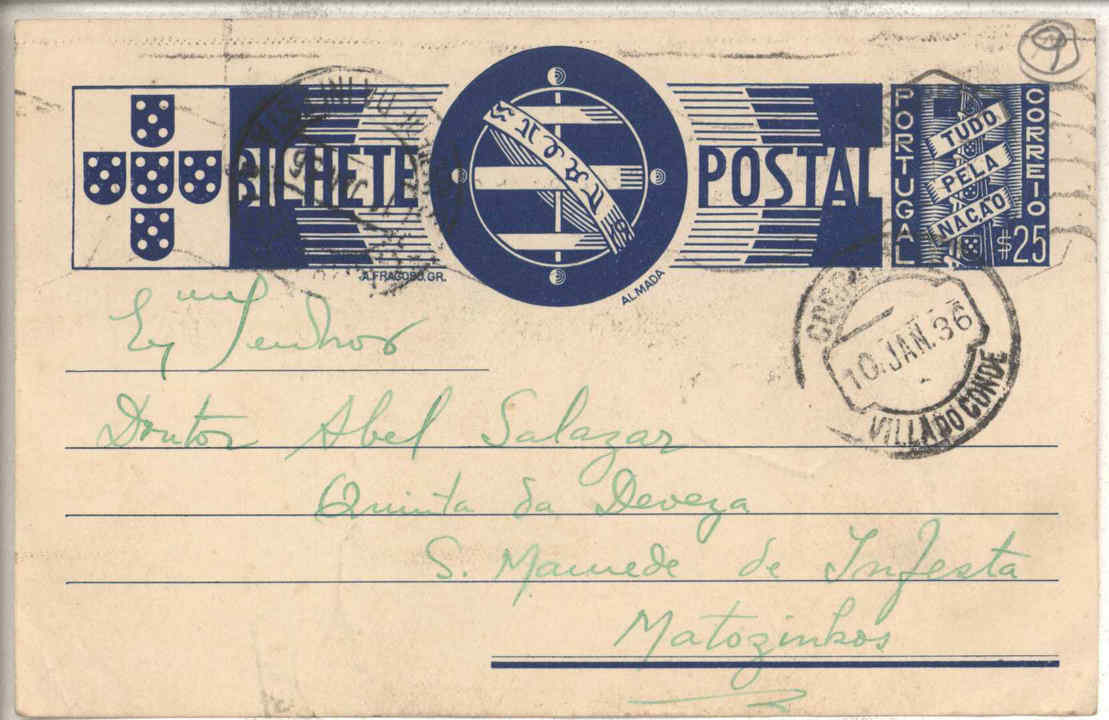 BILHETE POSTAL
PORTUGAL
CORREIO
TUDO
PELA
NAÇÃO
$25
A.FRAGOSO.GR.
ALMADA
10.JAN.36
VILLA DO CONDE
Exmo Senhor
Doutor Abel Salazar
Quinta da Deveza
S. Mamede de Infesta
Matozinhos